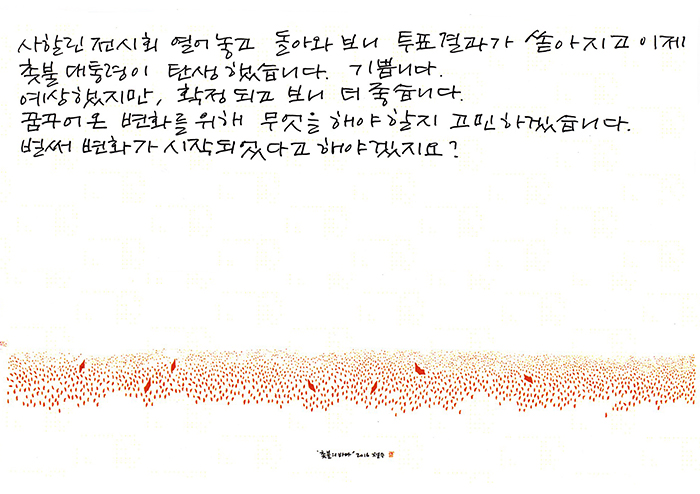 사할린 전시회 열어놓고 돌아와 보니 투표결과가 쏟아지고 이제
촛불 대통령이 탄생했습니다. 기쁩니다.
예상했지만, 확정되고 보니 더 좋습니다.
꿈꾸어 온 변화를 위해 무엇을 해야 할지 고민하겠습니다.
벌써 변화가 시작되었다고 해야겠지요?
'촛불의 바다' 2016